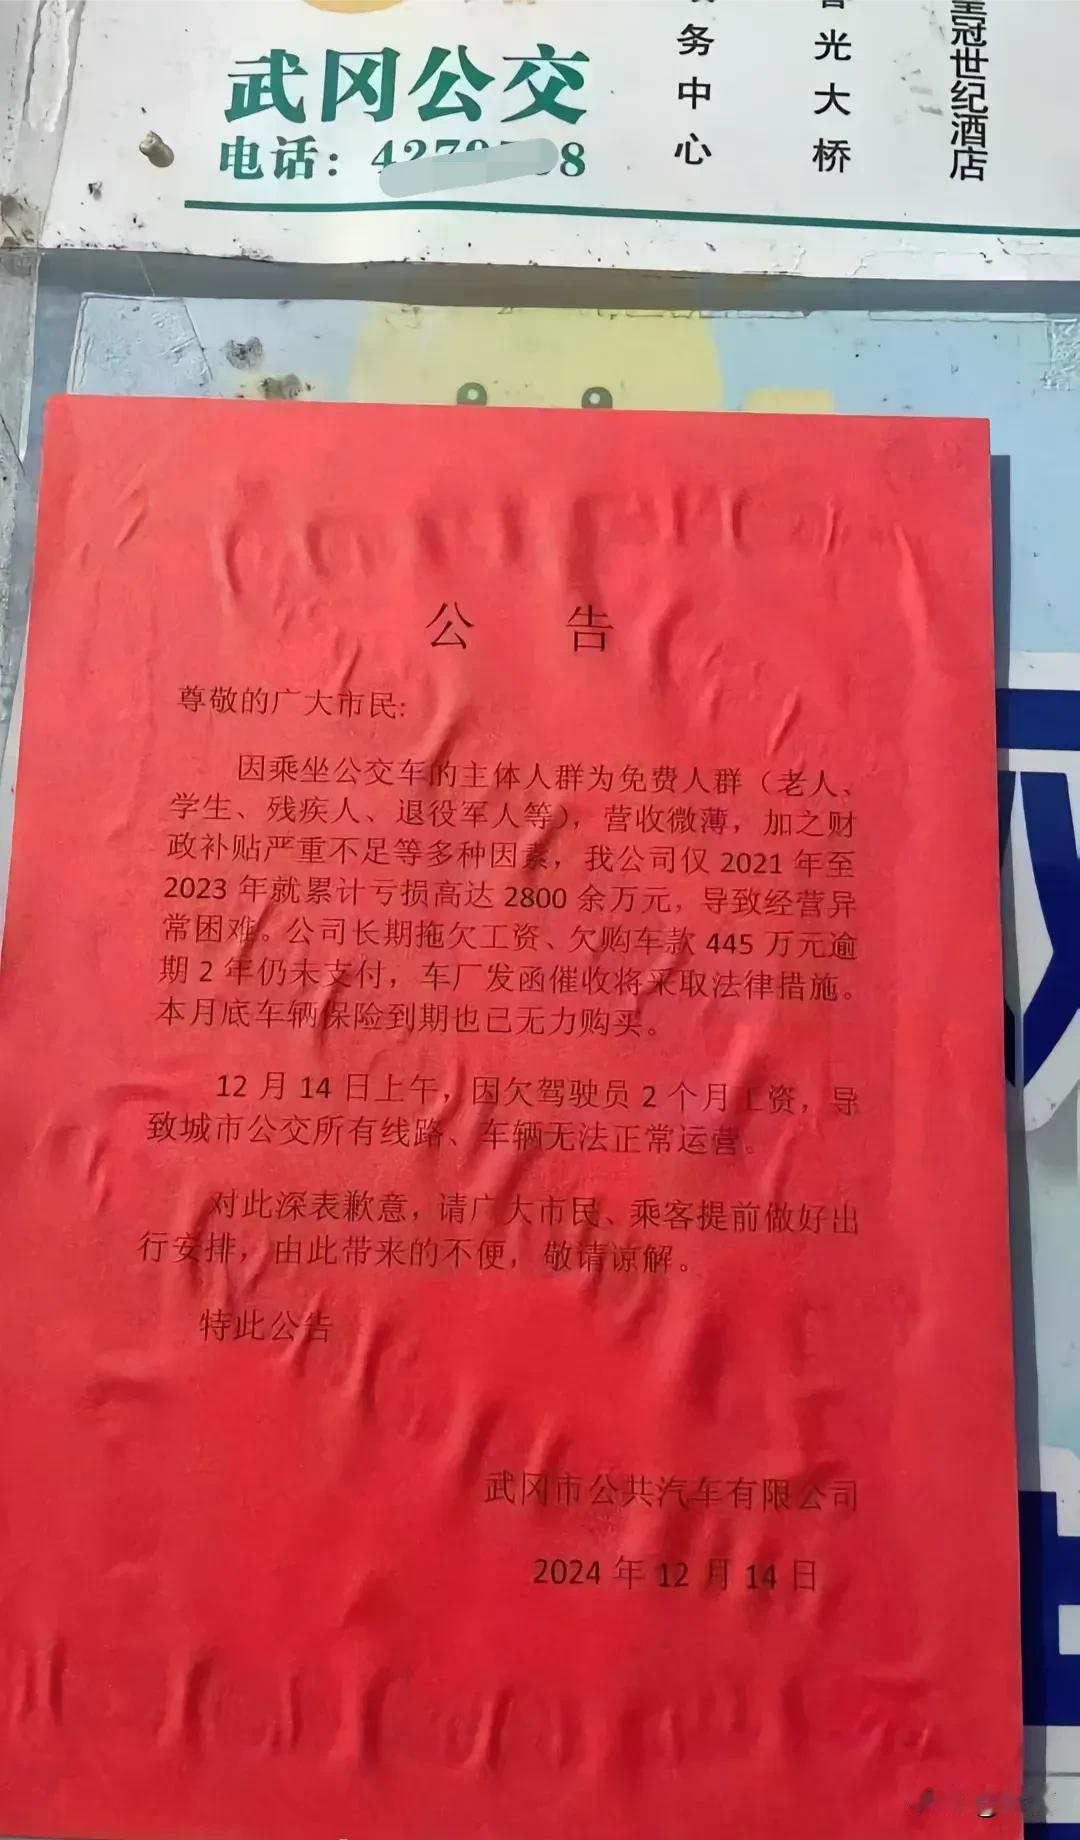 武冈公交
电话：4279 8
务中心
光大桥
冠世纪酒店
公 告
尊敬的广大市民:
因乘坐公交车的主体人群为免费人群（老人、
学生、残疾人、退役军人等），营收微薄，加之财
政补贴严重不足等多种因素，我公司仅 2021 年至
2023 年就累计亏损高达 2800 余万元，导致经营异
常困难。公司长期拖欠工资、欠购车款 445 万元逾
期 2 年仍未支付，车厂发函催收将采取法律措施。
本月底车辆保险到期也已无力购买。
12 月 14 日上午，因欠驾驶员 2 个月工资，导
致城市公交所有线路、车辆无法正常运营。
对此深表歉意，请广大市民、乘客提前做好出
行安排，由此带来的不便，敬请谅解。
特此公告
武冈市公共汽车有限公司
2024 年 12 月 14 日